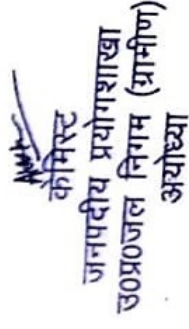 केमिस्ट
जनपदीय प्रयोगशाखा
उ0प्र0जल निगम (ग्रामीण)
अयोध्या